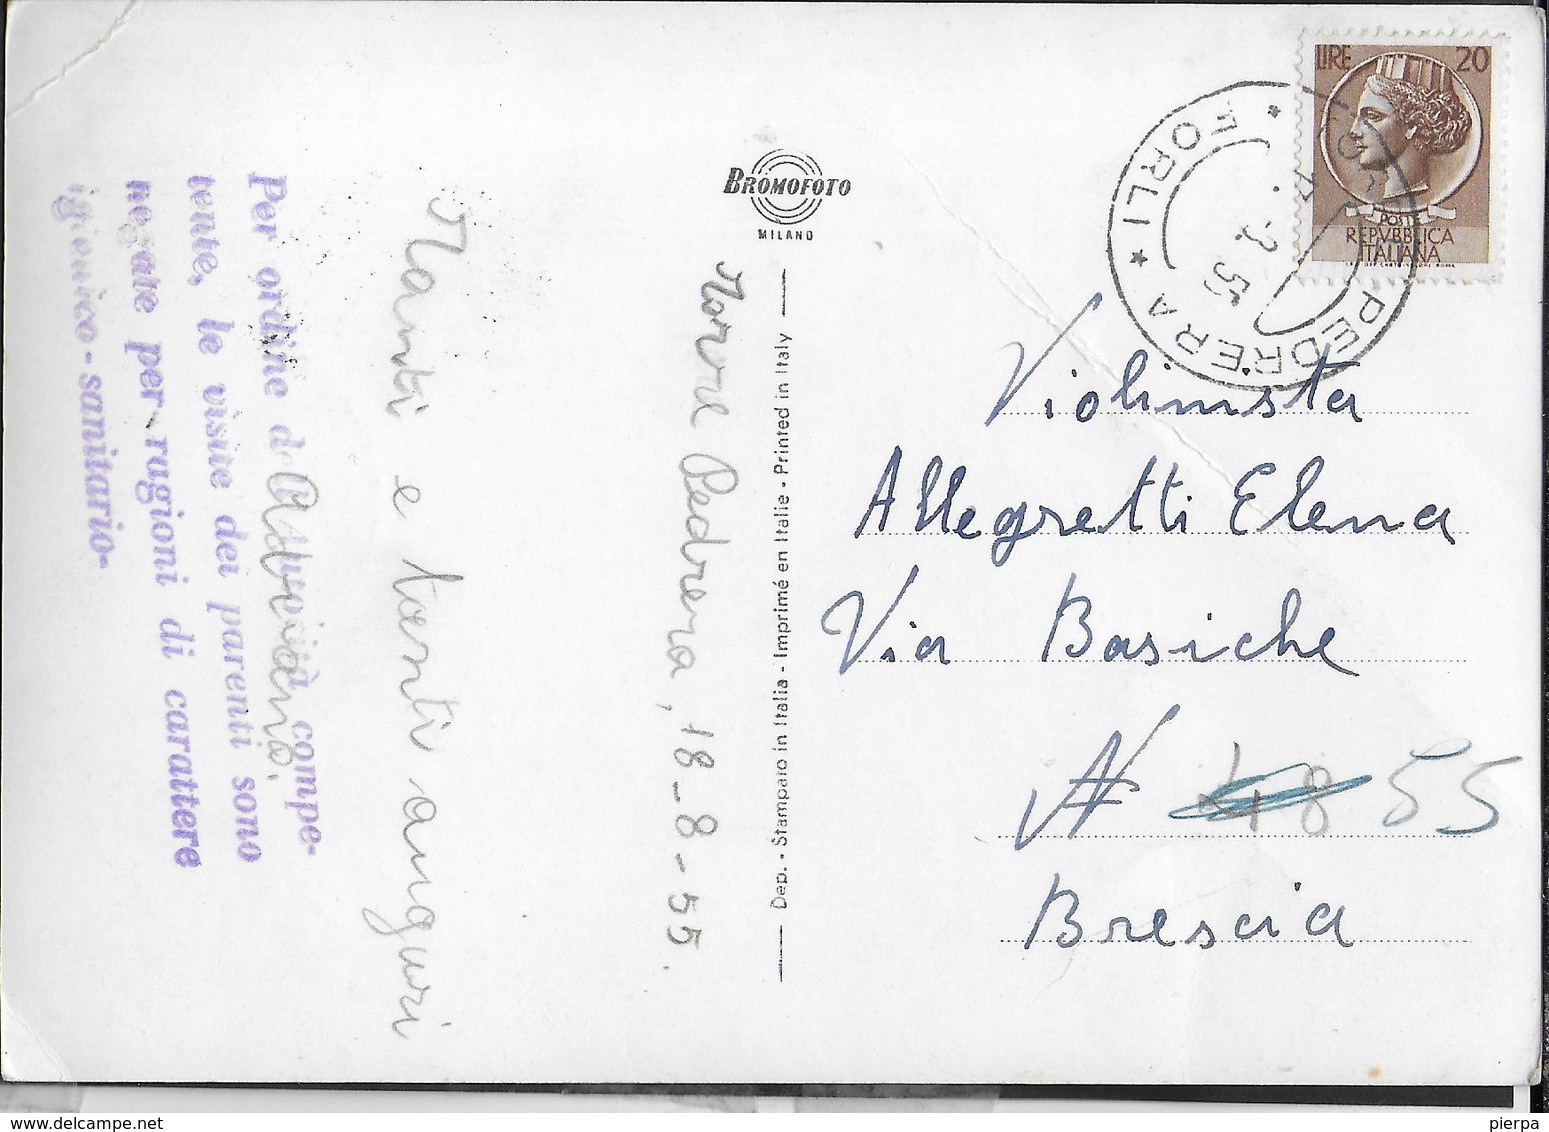 LIRE 20
POSTE
REPVBBLICA
ITALIANA
PEDRERA * FORLI *
2. 55
BROMOFOTO
MILANO
Torre Pedrera, 18-8-55.
Manti e tanti auguri
Adriano.
Per ordine d Autorità compe-
tente, le visite dei parenti sono
negate per ragioni di carattere
igienico-sanitario-
Dep. - Stampato in Italia - Imprimé en Italie - Printed in Italy
Violinista
Allegretti Elena
Via Basiche
N 48 55
Brescia
pierpa